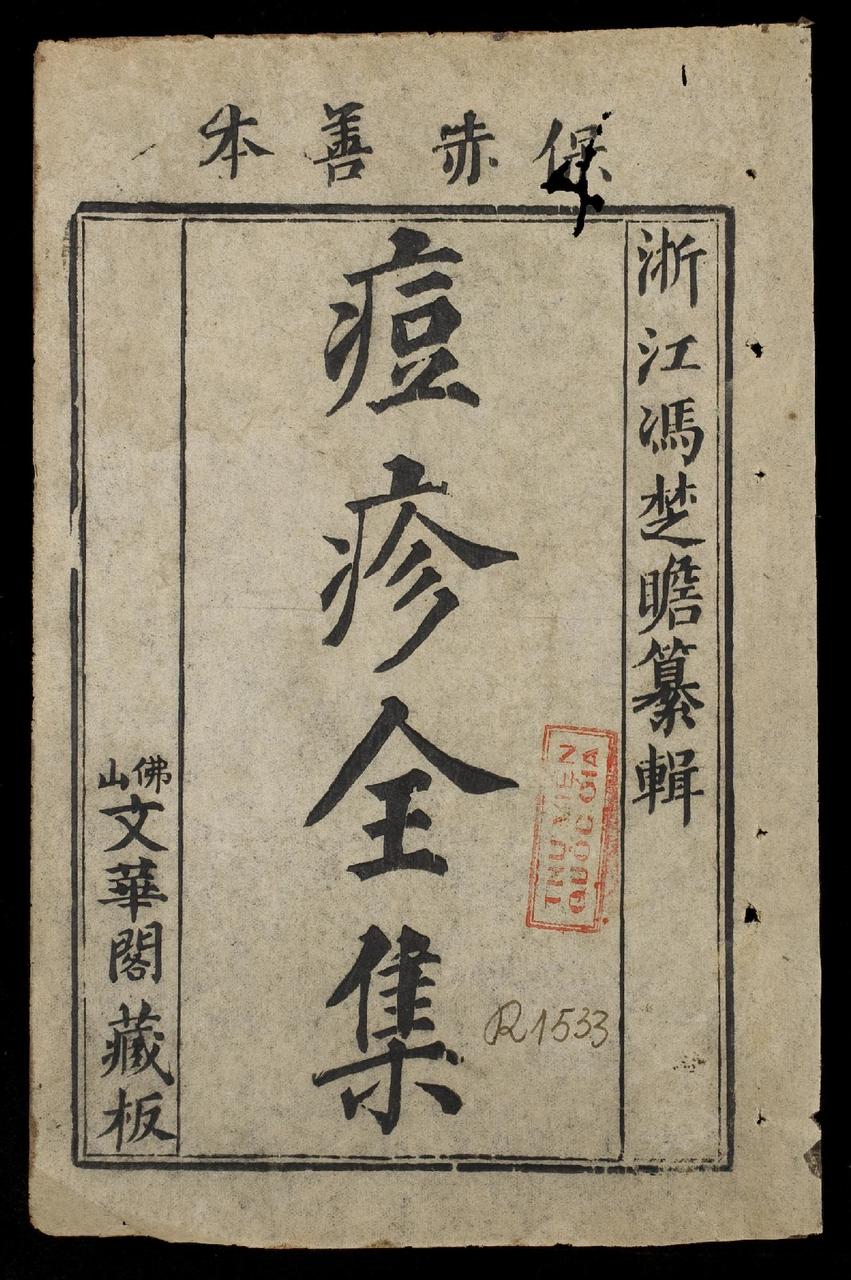 保赤善本
浙江馮楚瞻纂輯
痘疹全集
佛山文華閣藏板
THƯ VIỆN
QUỐC GIA
R1533